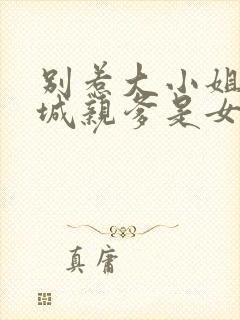 别惹大小姐
城亲爹是女
真庸